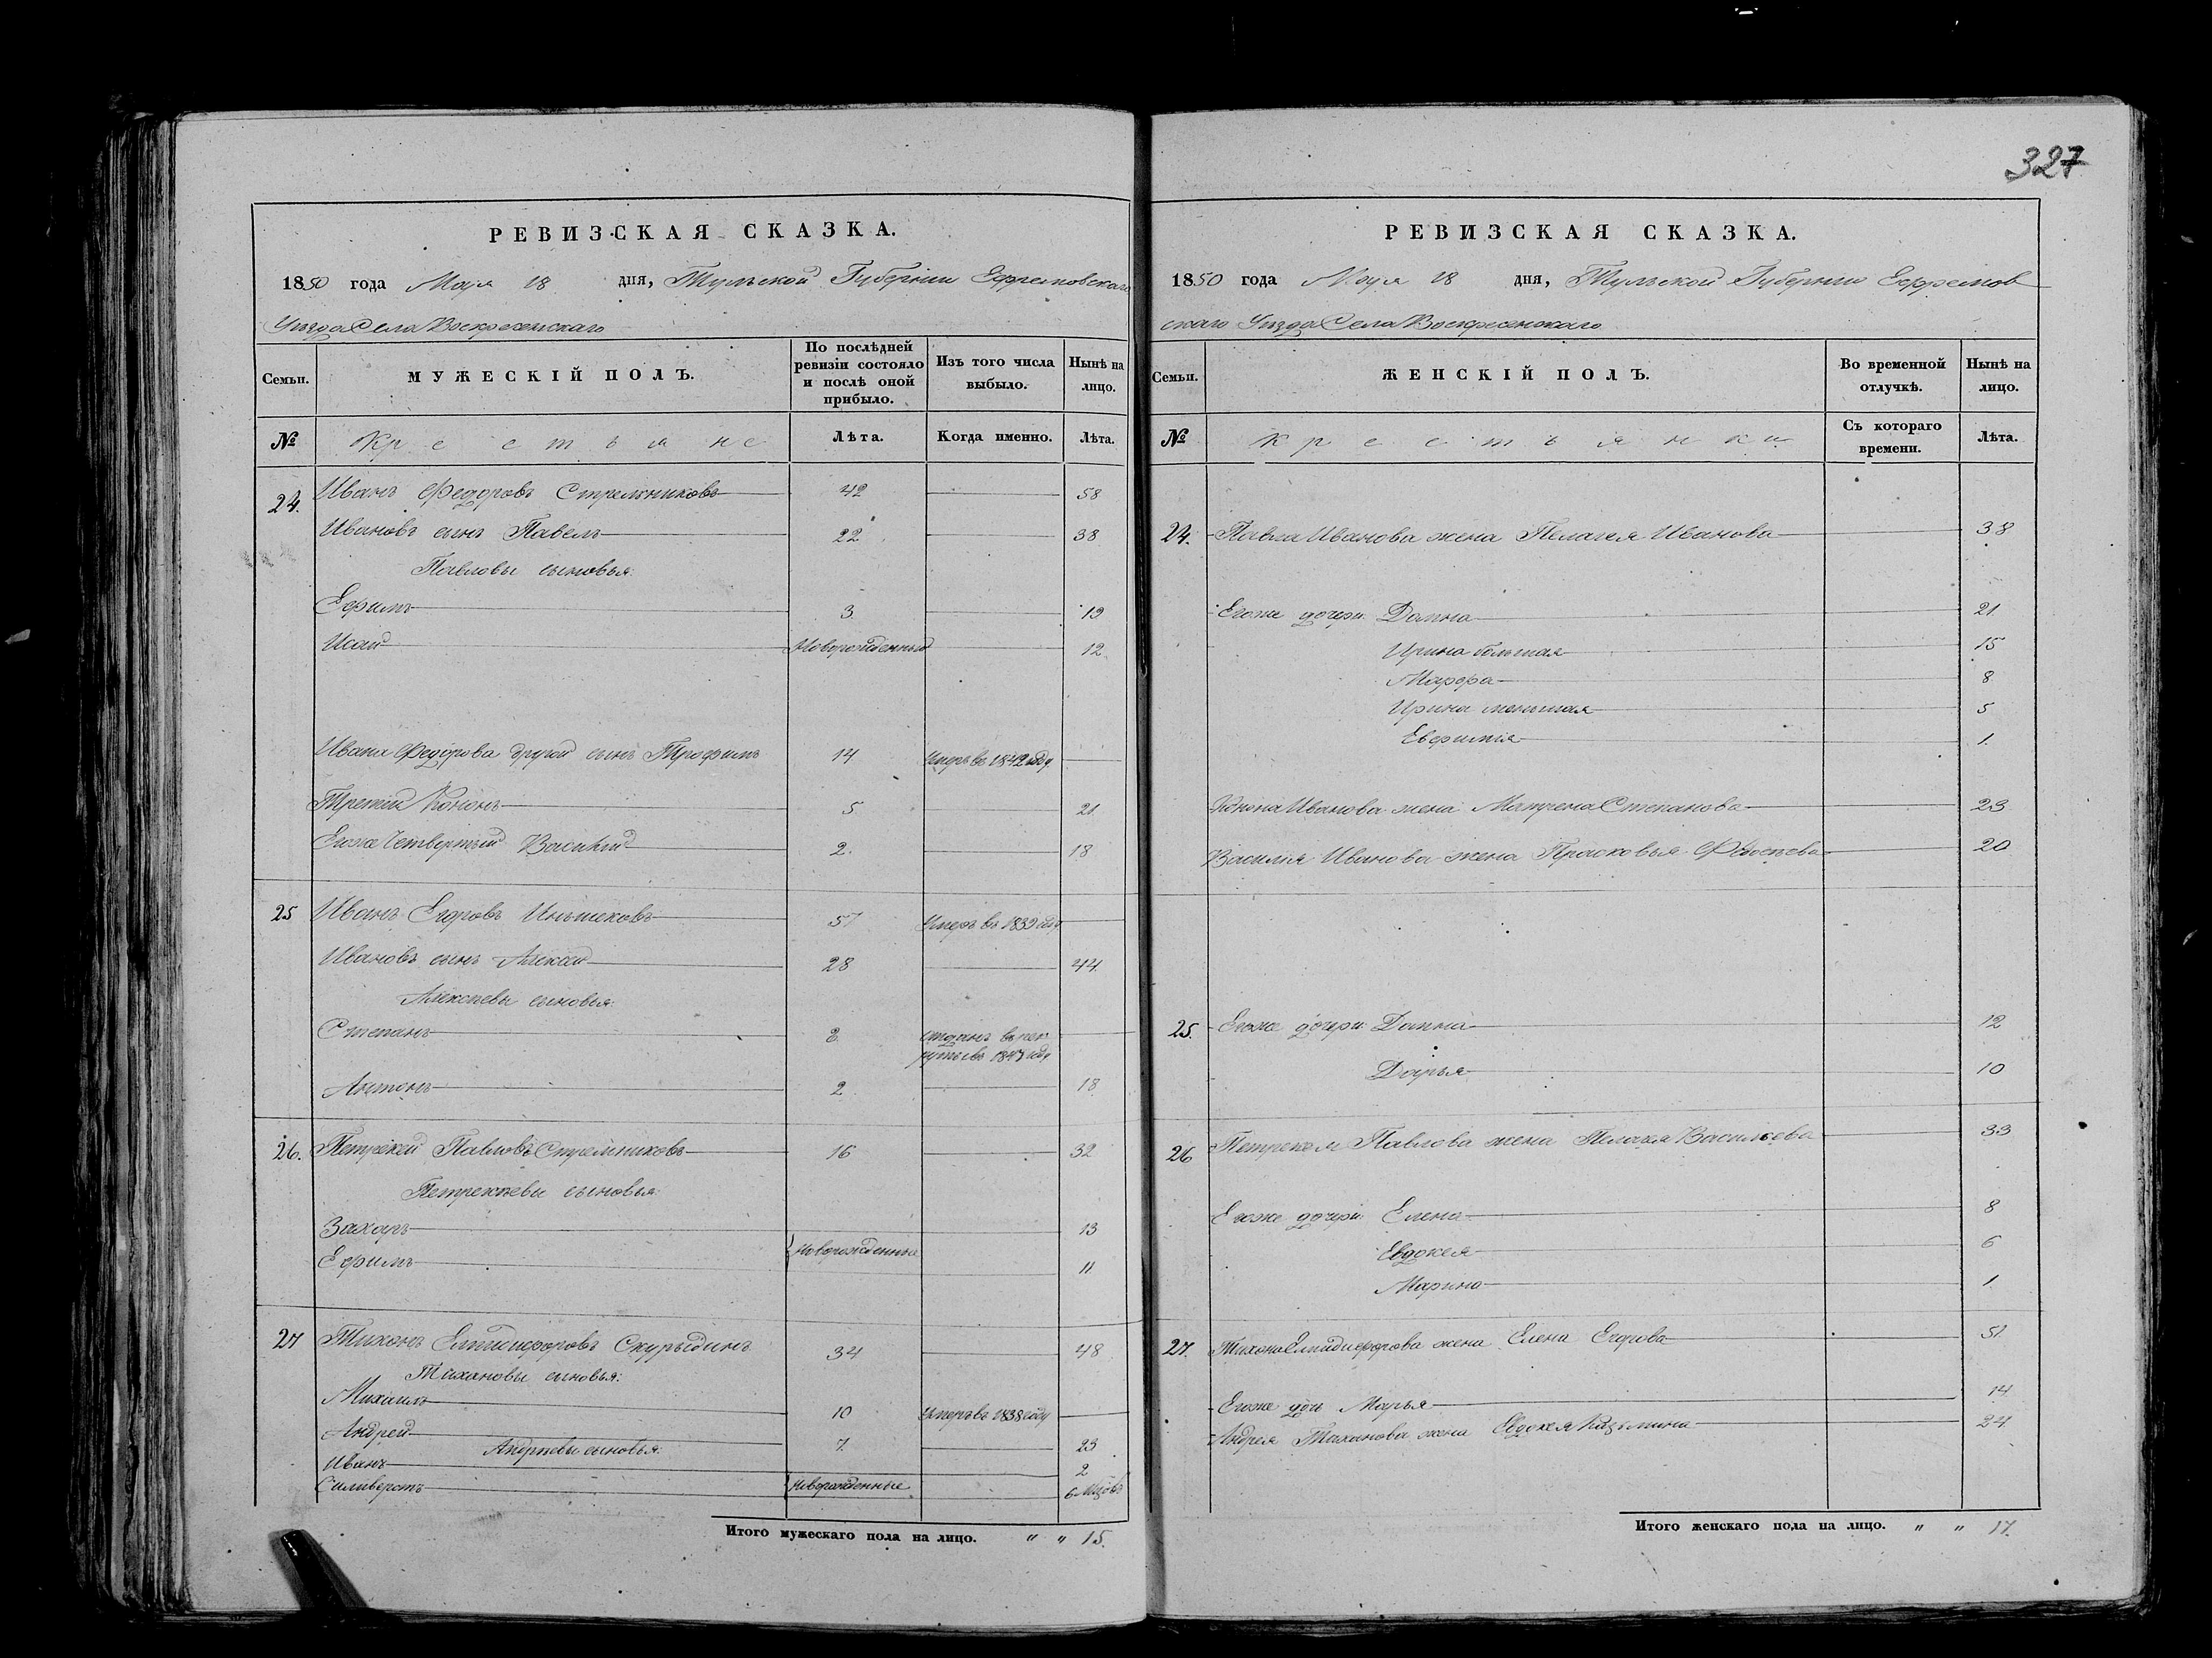 327
РЕВИЗСКАЯ СКАЗКА.
1850 года Мая 18 дня, Тульской Губернии Ефремовскаго
Уѣзда Села Воскресенскаго
Семьи. МУЖЕСКІЙ ПОЛЪ. По послѣдней ревизіи состояло и послѣ оной прибыло. Изъ того числа выбыло. Нынѣ на лицо.
№ Крестьяне Лѣта. Когда именно. Лѣта.
24. Иванъ Федоровъ Стрельниковъ 42 58
Ивановъ сынъ Павелъ 22 38
Павловы сыновья:
Ефимъ 3 19
Исай Новорожденный 12
Ивана Федорова другой сынъ Трофимъ 14 Умеръ въ 1842 году
Третий Кононъ 5 21
Егоже Четвертый Василий 2. 18
25 Иванъ Егоровъ 57 Умеръ въ 1839 году
Ивановъ сынъ Алексей 28 44
Алексѣевы сыновья:
Степанъ 8 отданъ в рекруты въ году
Антонъ 2 18
26. Петрекей Павловъ Стрельниковъ 16 32
Петрекѣевы сыновья:
Захаръ 13
Новорожденные
Ефимъ 11
27 Тихонъ Елпидифоровъ Скурыдинъ 34 48
Тихановы сыновья:
Михаилъ 10 Умеръ въ 1838 году
Андрей 7. 23
Андрѣевы сыновья:
Иванъ 2
Силиверстъ Новорожденные 6 Мцовъ
Итого мужескаго пола на лицо. " " 15.
РЕВИЗСКАЯ СКАЗКА.
1850 года Мая 18 дня, Тульской Губернии Ефремов
скаго Уѣзда Села Воскресенскаго
Семьи. ЖЕНСКІЙ ПОЛЪ. Во временной отлучкѣ. Нынѣ на лицо.
№ Крестьянки Съ котораго времени. Лѣта.
24. Павла Иванова жена Пелагея Иванова 38
Егоже дочери: Домна 21
Ирина большая 15
Марфа 8
Ирина меньшая 5
Евфимия 1.
Конона Иванова жена Матрена Степанова 23
Василия Иванова жена Прасковья 20
25. Егоже дочери: Домна 12
Дарья 10
26 Петрекея Павлова жена Пелагея Васильева 33
Егоже дочери: Елена 8
Евдокея 6
Марина 1
27. Тихона Елпидифорова жена Елена Егорова 51
Егоже дочь Марья 14
Андрея Тиханова жена Евдокея Казьмина 24
Итого женскаго пола на лицо. " " 17.